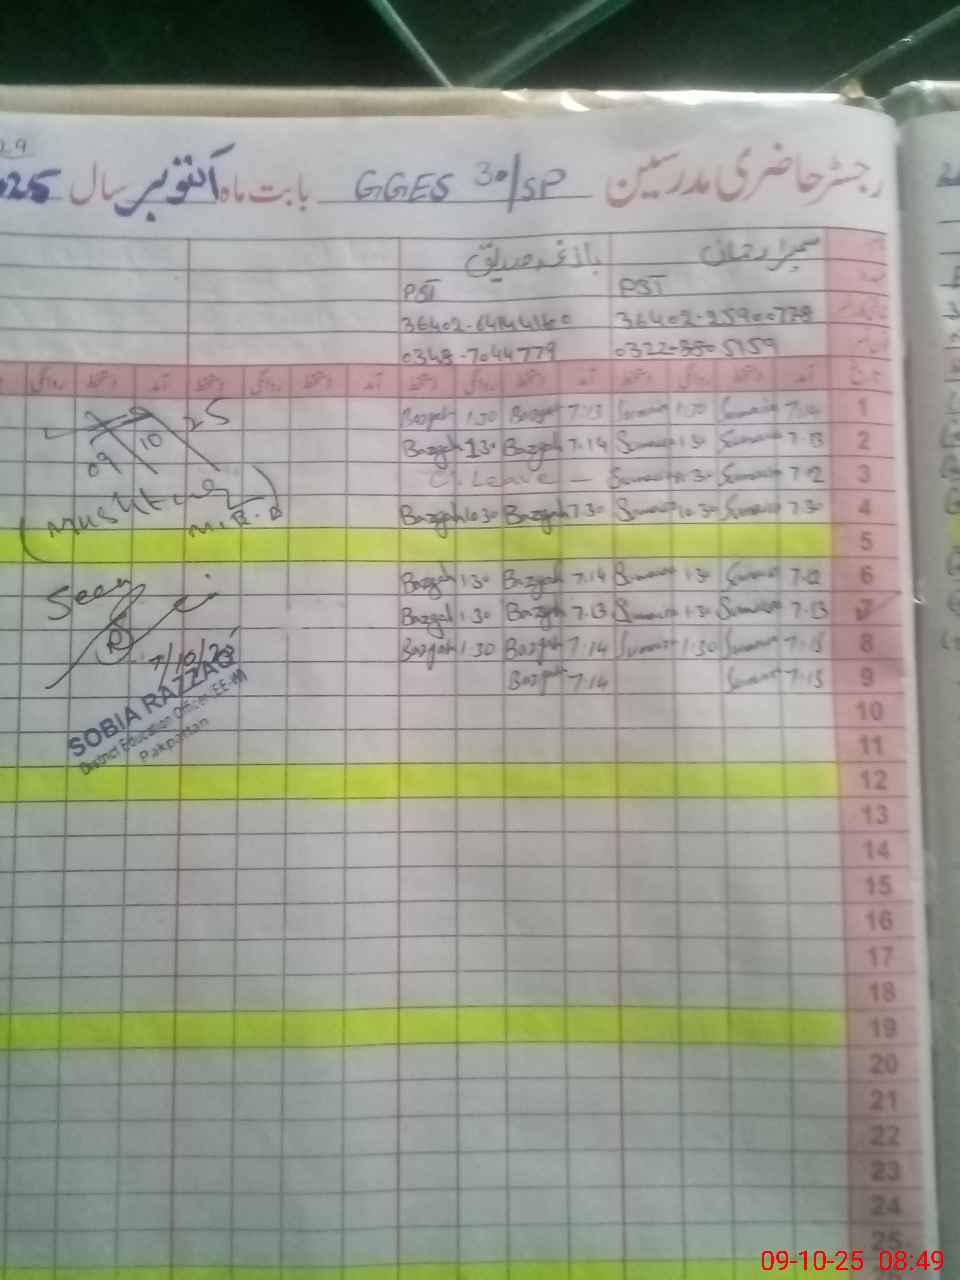 رجسٹر حاضری مدرسین GGES 30/SP بابت ماہ اکتوبر سال 2025
سمیرا رحمان بازغہ صدیق
PST PST
36402-2590077-8 36402-6414416-0
0322-8805159 0348-7044779
آمد دستخط روانگی دستخط آمد دستخط روانگی دستخط آمد دستخط روانگی دستخط آمد دستخط روانگی
1 7.14 Sumaira 1.30 Sumaira 7.13 Bazgah 1.30 Bazgah
2 7.13 Sumaira 1.30 Sumaira 7.14 Bazgah 1.30 Bazgah
3 7.12 Sumaira 1.30 Sumaira C. Leave —
4 7.30 Sumaira 10.30 Sumaira 7.30 Bazgah 10.30 Bazgah
5
6 7.12 Sumaira 1.30 Sumaira 7.14 Bazgah 1.30 Bazgah
7 7.13 Sumaira 1.30 Sumaira 7.13 Bazgah 1.30 Bazgah
8 7.15 Sumaira 1.30 Sumaira 7.14 Bazgah 1.30 Bazgah
9 7.15 Sumaira 7.14 Bazgah
10
11
12
13
14
15
16
17
18
19
20
21
22
23
24
25
09 10 25
Seen
7/10/25
SOBIA RAZZAQ
District Education Officer (EE-W)
Pakpattan
09-10-25 08:49